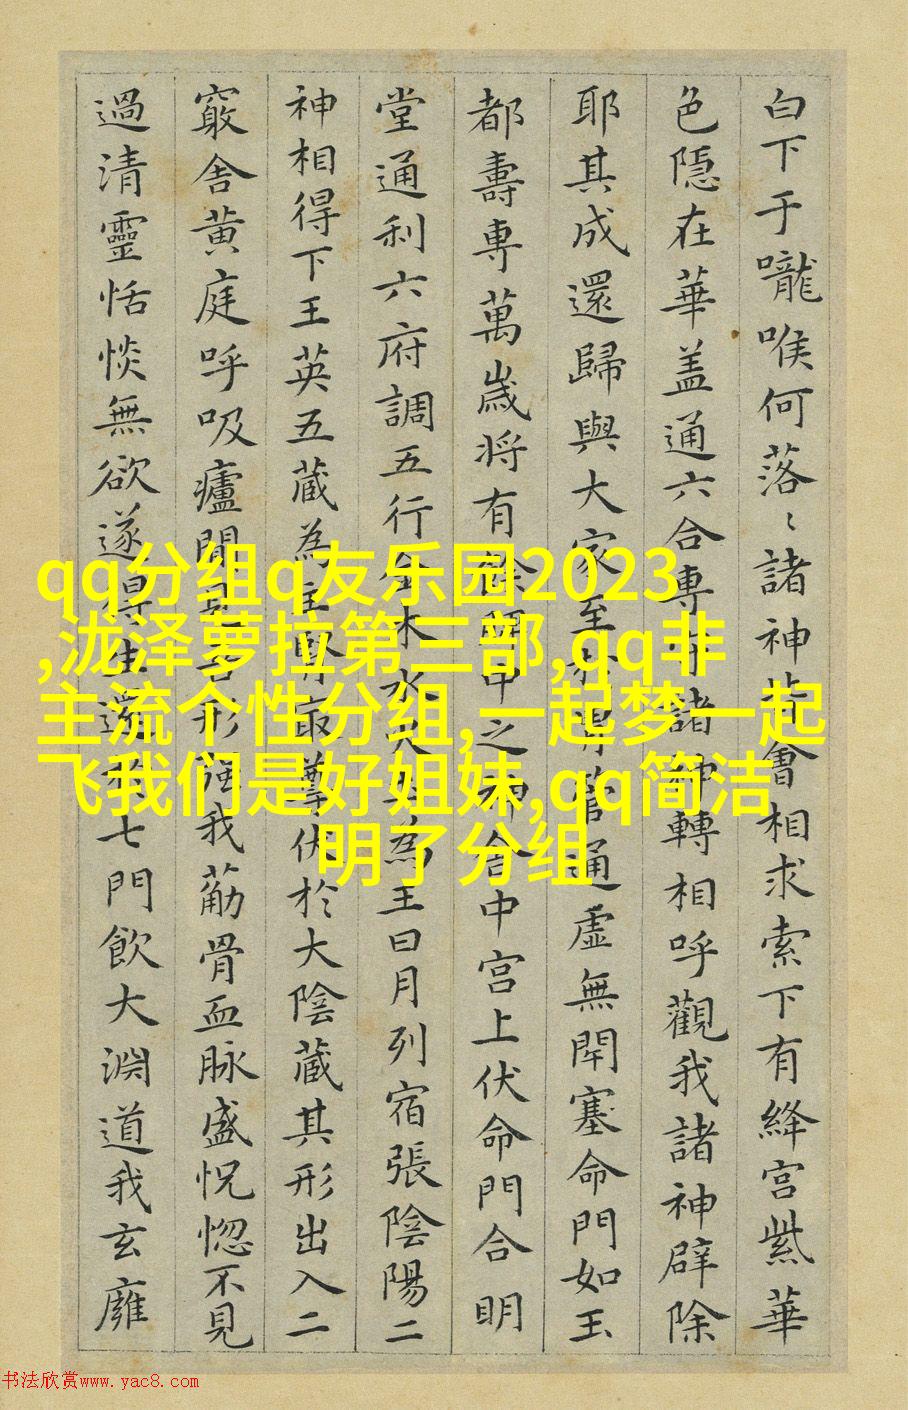 白下于嚨喉何落〻諸神皆會相求索下有絳宫紫華
色隱在華盖通六合專守諸神轉相呼觀我諸神辟除
耶其成還歸與大家至於胃管通虛無閇塞命門如玉
都壽専萬歲将有餘脾中之神舍中宫上伏命門合明
堂通利六府調五行金木水火土為王日月列宿張陰陽二
神相得下王英五藏為主腎㝡尊伏於大陰藏其形出入二
竅舍黄庭呼吸廬間見吾形强我筋骨血脉盛怳惚不見
過清靈恬惔無欲遂得生還於七門飲大淵道我玄廱
qq分组q友乐园2023
,泷泽萝拉第三部,qq非
主流个性分组,一起梦一起
飞我们是好姐妹,qq简洁
明了分组
书法欣赏www.yac8.com